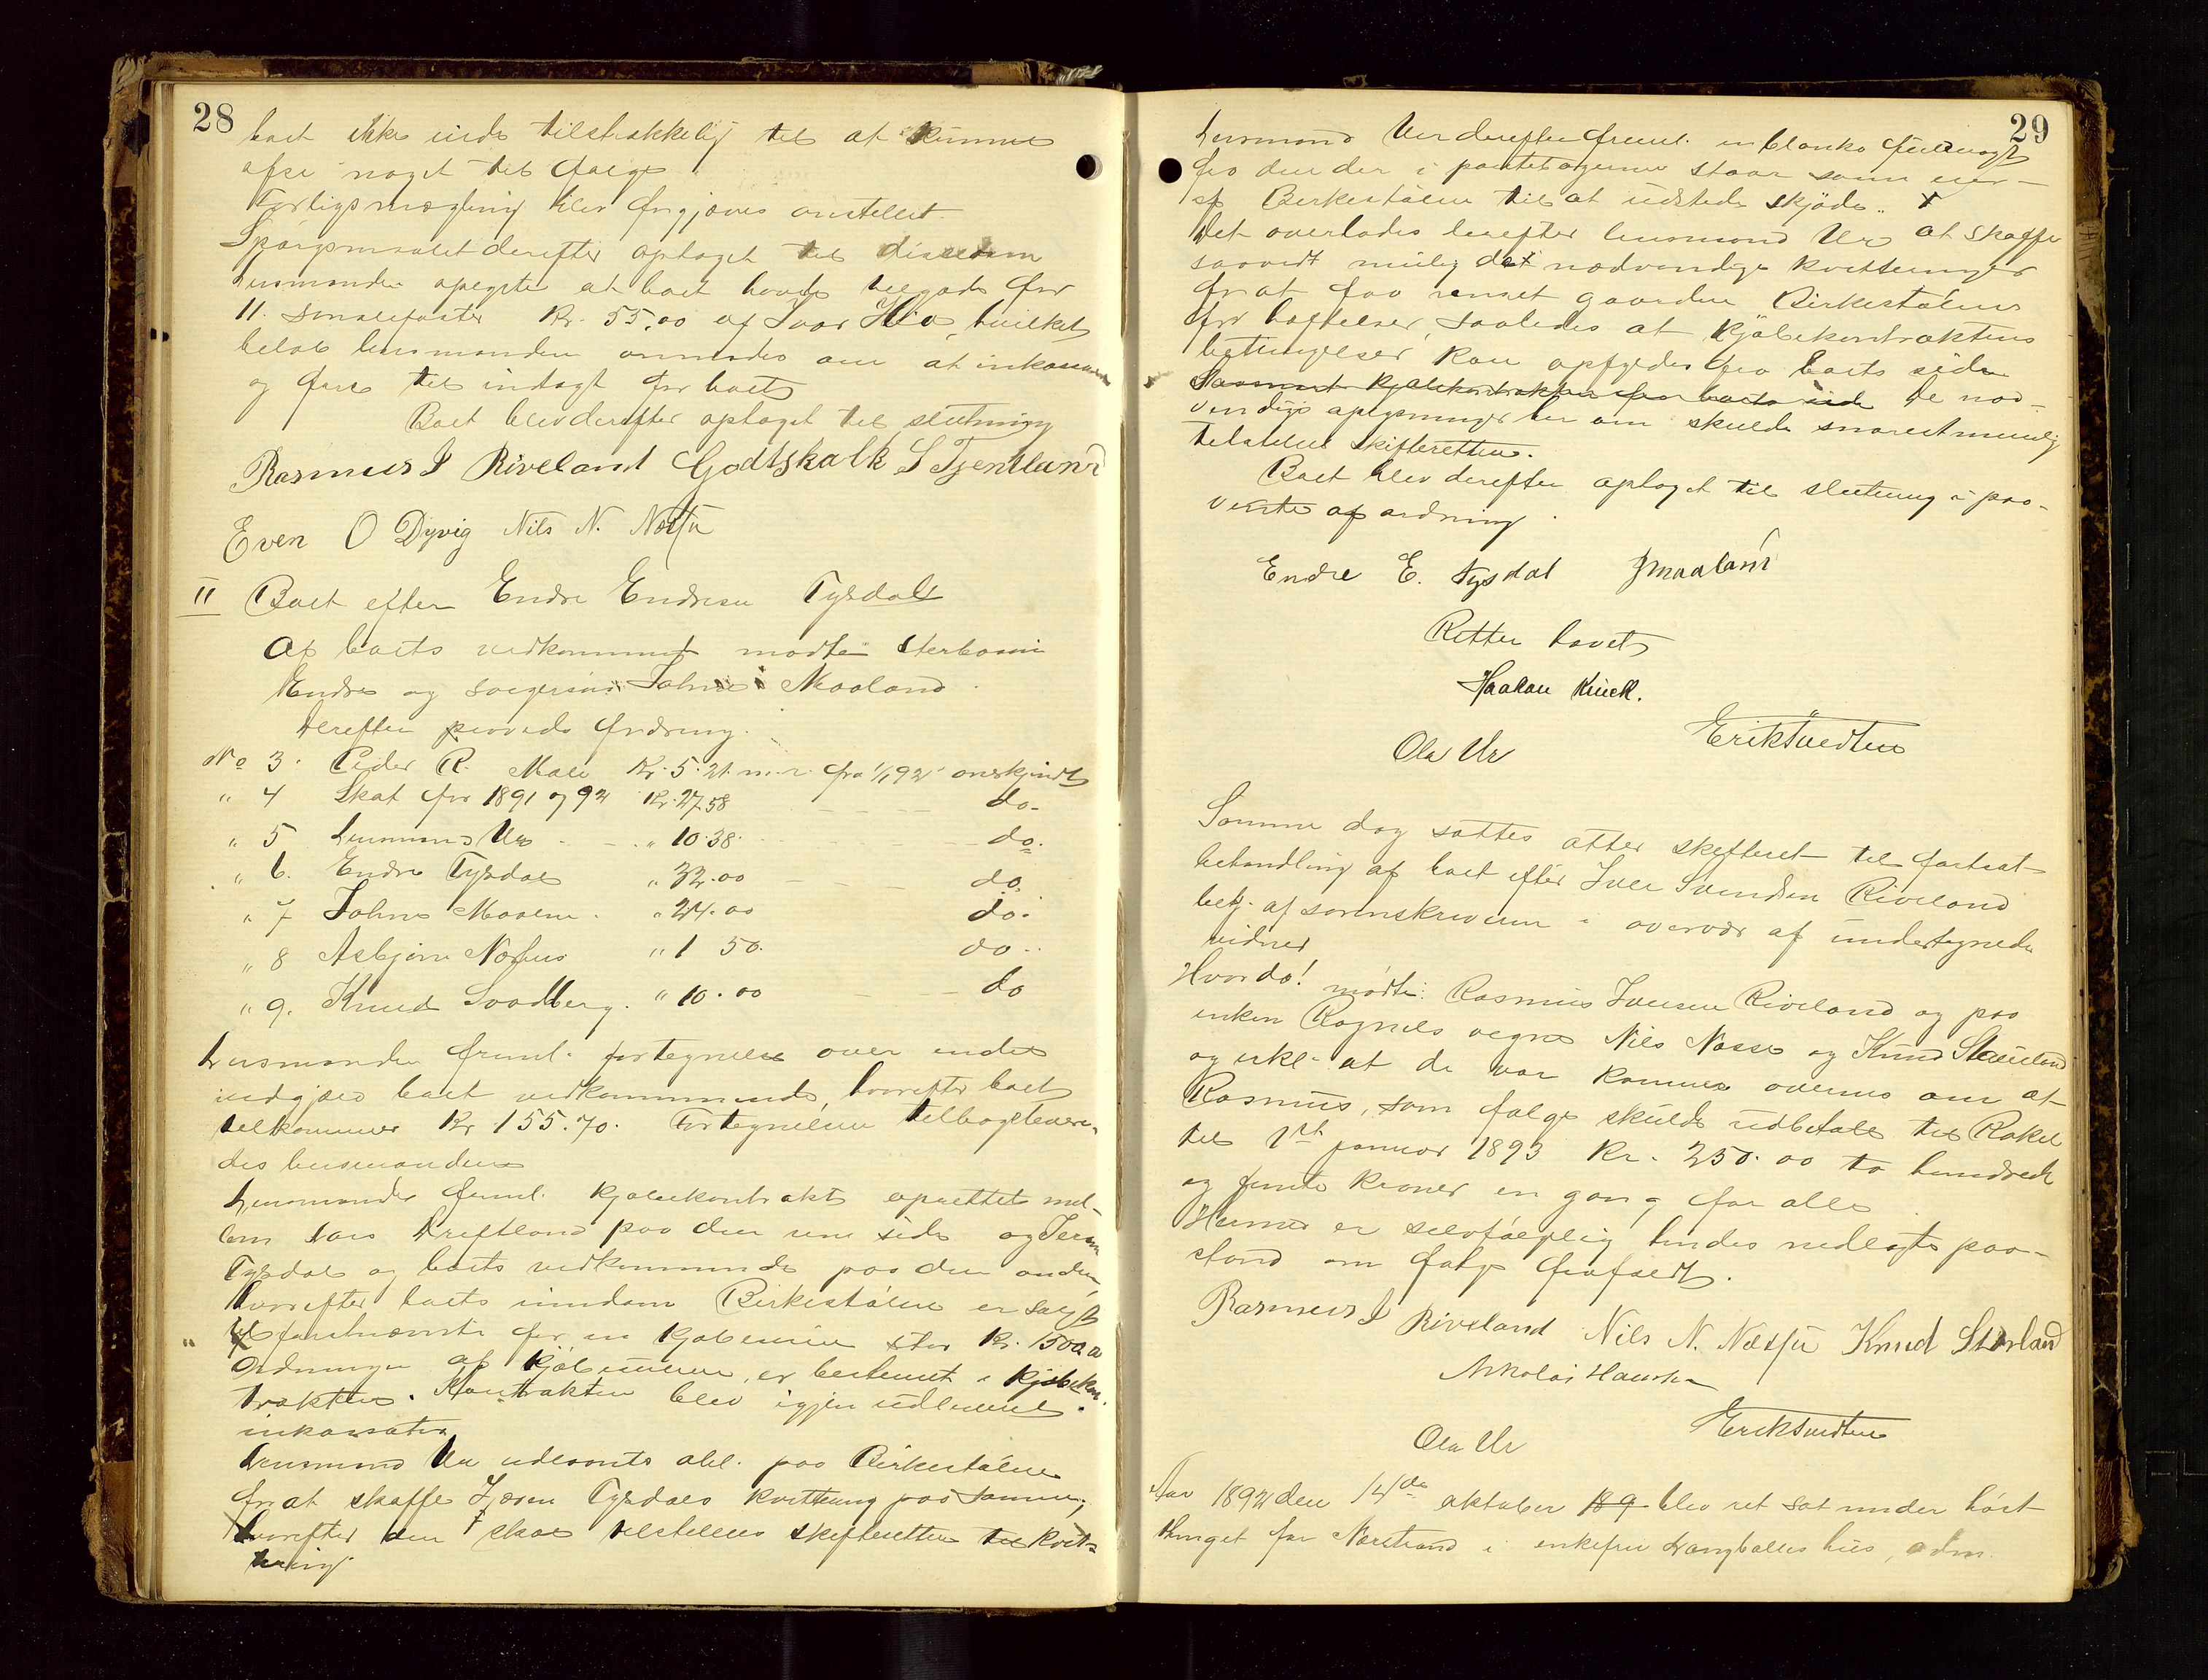 28
boet ikke inde tilstrækkelig til at kunne
afse noget til følge
Forligsmægling blev forgjæves anstillet.
Spørgsmaalet derefter optaget til
Lensmanden oplyste at boet havde tilgode for
11 Kr. 55,00 af Ivar hvilket
beløb lensmanden anmodes om at inkassere
og føre til indtægt for boet
Boet blev derefter optaget til slutning
Rasmus I Riveland Godtskalk S Tjentland
Even O Dyvig Nils N. Næsse
II Boet efter Endre Endresen Tysdal
Af boets vedkommende mødte sterbosøn
Endre og svigersøn Johne Maaland.
Derefter prøvedes fordring.
No 3. Peder R. Male Kr. 5.21. m. r. fra 1/1 92 anerkjendt
" 4 Skat for 1891 og 92 Kr. 27.58 do.
" 5 Lensmand Ur " 10.38. do.
" 6. Endre Tysdal " 32.00 do.
" 7 Johne " 24.00 do.
" 8 Asbjørn " 1 50. do.
" 9. Knud Svadberg. " 10.00 do
Lensmanden freml. fortegnelse over indest
boet vedkommende, hvorefter boet
tilkommer Kr 155.70. Fortegnelsen tilbageleveredes
lensmanden
Lensmanden freml. kjøbekontrakt oprettet mellem
Lars paa den ene side og
Tysdal og boets vedkommende paa den anden
hvorefter boets eiendom Birkestølen er solgt
til førstnævnte for en kjøbesum stor Kr. 1500.00
Ordningen af kjøbesummen er bestemt i kjøbekontrakten.
Kontrakten blev igjen udleveret.
Lensmand Ur paa Birkestølen
for at skaffe Tysdals kvittering paa samme,
hvorefter den skal tilstilles skifteretten til kvittering
29
Lensmand Ur derefter freml. en blanko fuldmagt
fra den der i pantebøgerne staar som eier
af Birkestølen til at udstede skjøde. x
Det overlades herefter lensmand Ur at skaffe
saavidt mulig det nødvendige kvitteringer
for at faa renset gaarden Birkestølen
for heftelser, saaledes at kjøbekontraktens
betingelser kan opfyldes fra boets side
kjøbekontrakten fra boets side De nødvendige
oplysninger her om skulde snarest mulig
tilstilles skifteretten.
Boet blev derefter optaget til slutning i paavente
af ordning.
Endre E. Tysdal J Maaland
Retten hævet
Haakon Kinck.
Ola Ur Erik Tuedten
Samme dag sattes atter skifteret til fortsat
behandling af boet efter Iver Svendsen Riveland
betj. af sorenskriveren i overvær af undertegnede
vidner
Hvorda! mødte: Rasmus Iversen Riveland og paa
enken Ragnels vegne Nils Næsse og Knud Størland
og erkl. at de var kommet overens om at
Rasmus, som følge skulde udbetale til Rakel
til 1st januar 1893 Kr. 250.00 to hundrede
og femti kroner en gang for alle
Herved er selvfølgelig hendes nedlagte paastand
om følge frafaldt.
Rasmus I Riveland Nils N. Næsse Knud Størland
Nikolai Hansen
Ola Ur Erik Tuedten
Aar 1892 den 14de oktober 189 blev ret sat under høstthinget
for Nærstrand i enkefru hus, adm.